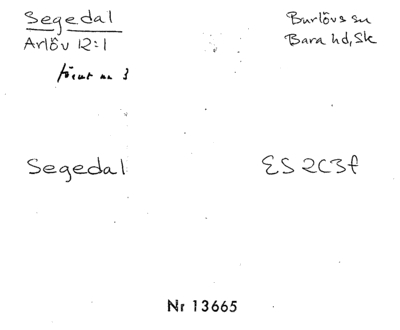 Segedal
Arlöv 12:1
förut nr 3
Burlövs sn
Bara hd, Sk
Segedal
ES 2C3f
Nr 13665